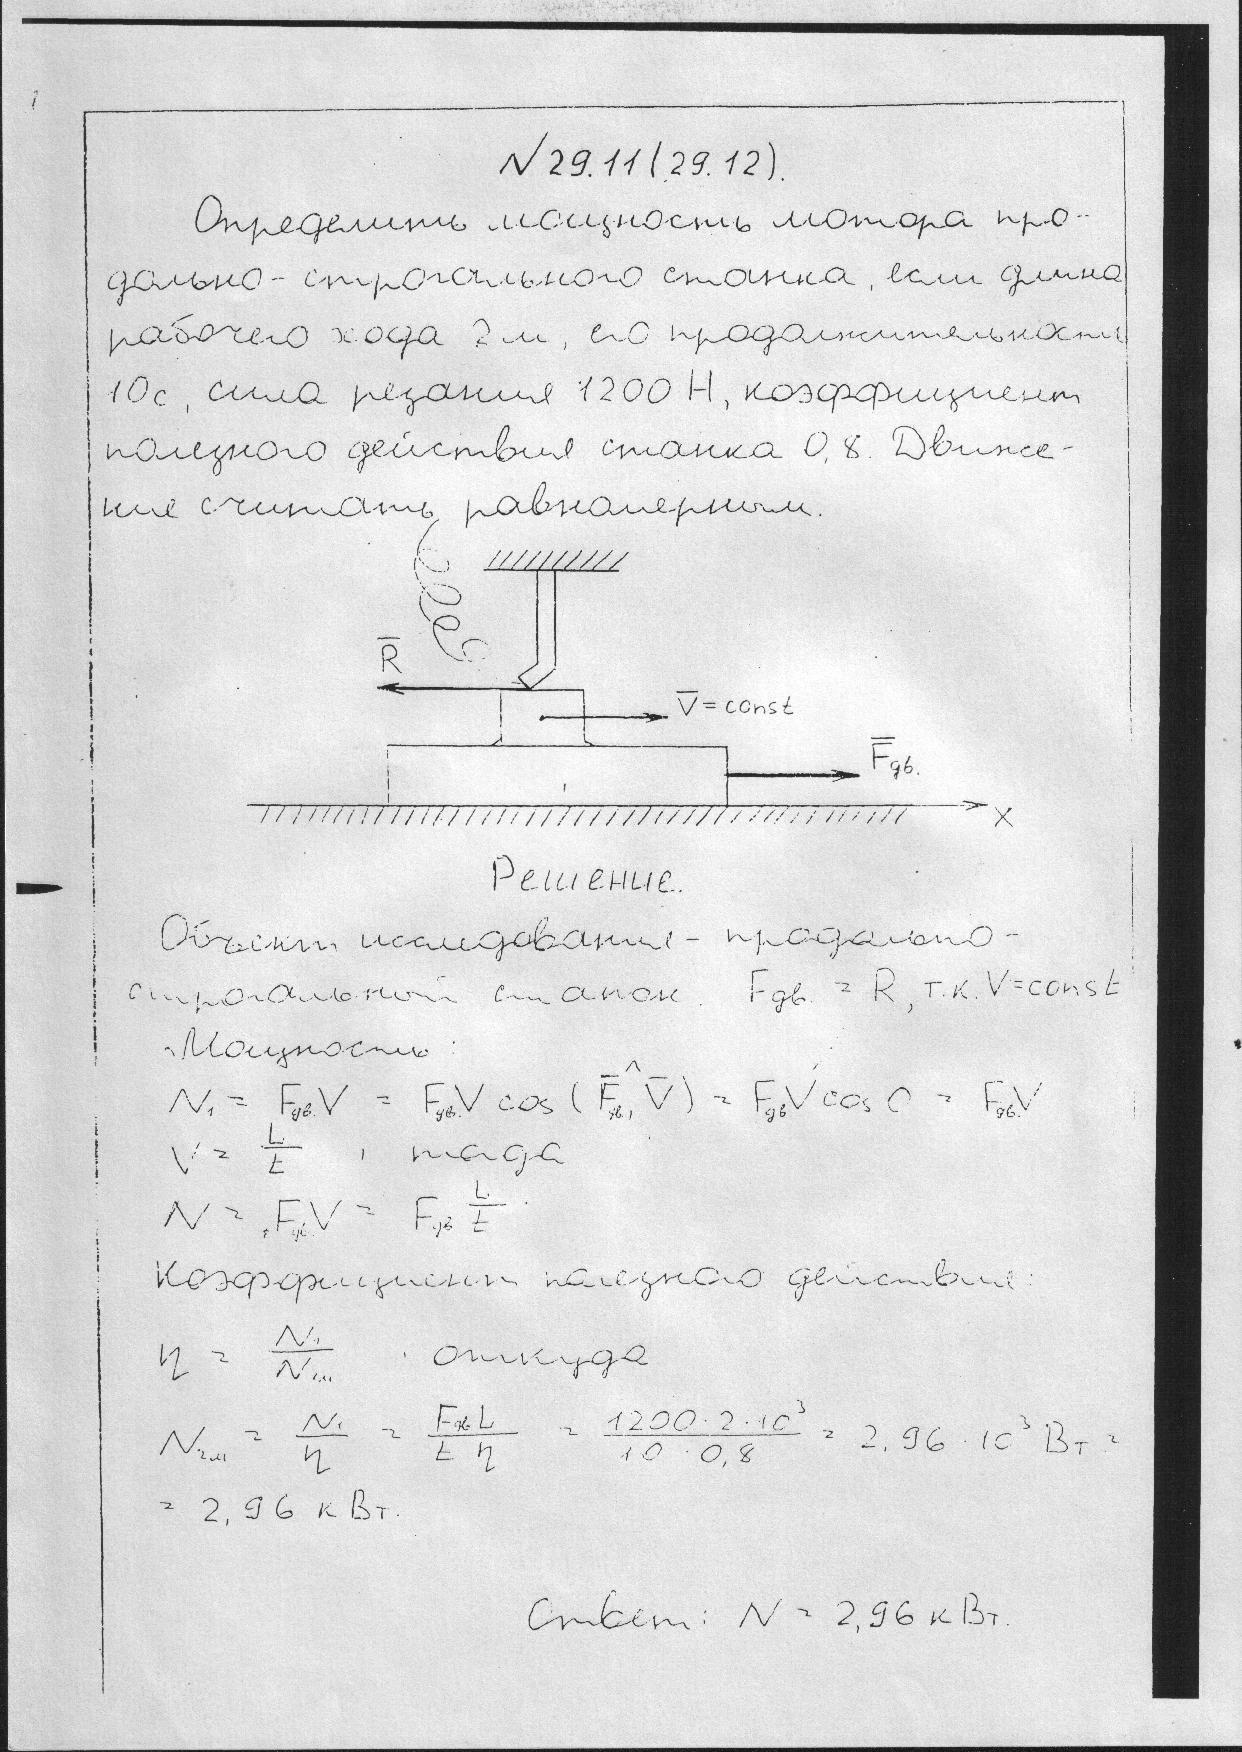 N 29.11 (29.12).
Определить мощность мотора про-
дольно-строгального станка, если длина
рабочего хода 2 м, его продолжительность
10 с, сила резания 1200 Н, коэффициент
полезного действия станка 0,8. Движе-
ние считать равномерным.
R̅
V̅ = const
F̅дв.
x
Решение.
Объект исследования - продольно-
строгальный станок. Fдв. = R, т.к. V = const
Мощность:
N₁ = Fдв.V = Fдв.V cos (F̅дв.^, V̅) = Fдв.V cos 0 = Fдв.V
V = L/t , тогда
N = Fдв.V = Fдв L/t
Коэффициент полезного действия:
η = N₁/Nм , откуда
Nм = N₁/η = Fдв L/t η = 1200·2·10³/10·0,8 = 2,96·10³ Вт =
= 2,96 кВт.
Ответ: N = 2,96 кВт.